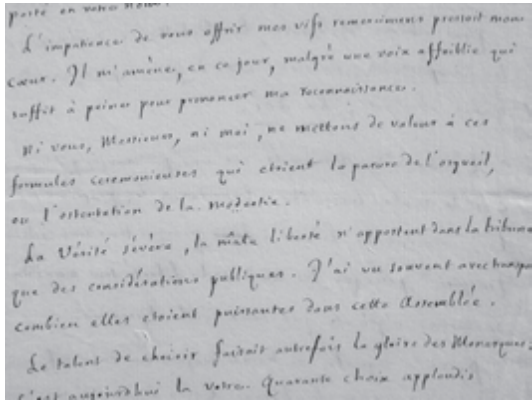 porté en votre nom.
L'impatience de vous offrir mes vifs remerciemens pressoit mon
cœur. Il m'amène, en ce jour, malgré une voix affoiblie qui
suffit à peine pour prononcer ma reconnoissance.
Ni vous, Messieurs, ni moi, ne mettons de valeur à ces
formules ceremonieuses qui etoient la parure de l'orgueil,
ou l'ostentation de la modestie.
La Vérité sévère, la mâle liberté n'apportent dans la tribune
que des considérations publiques. J'ai vu souvent avec
combien elles etoient puissantes dans cette Assemblée.
Le talent de choisir faisoit autrefois la gloire des Monarques;
c'est aujourdhui la votre. Quarante choix applaudis